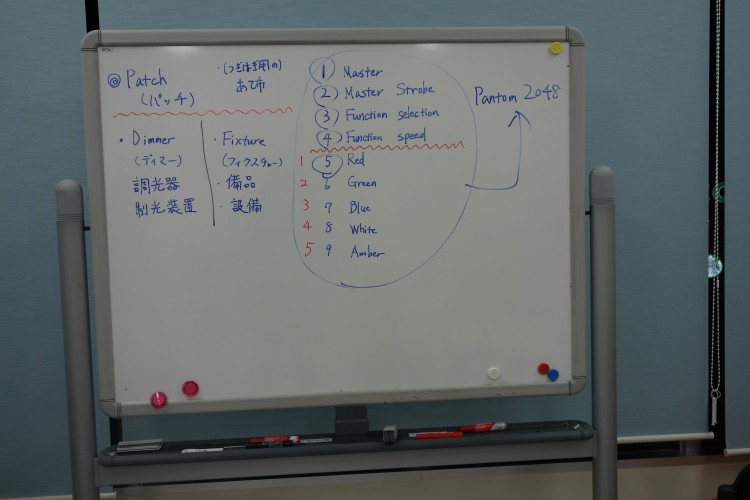 ◎ Patch
(パッチ)
・(つぎはぎ用の)
あて布
・Dimmer
(ディマー)
調光器
制光装置
・Fixture
(フィクスチャー)
・備品
・設備
1 Master
2 Master Strobe
3 Function selection
4 Function speed
1 5 Red
2 6 Green
3 7 Blue
4 8 White
5 9 Amber
Pantom 2048